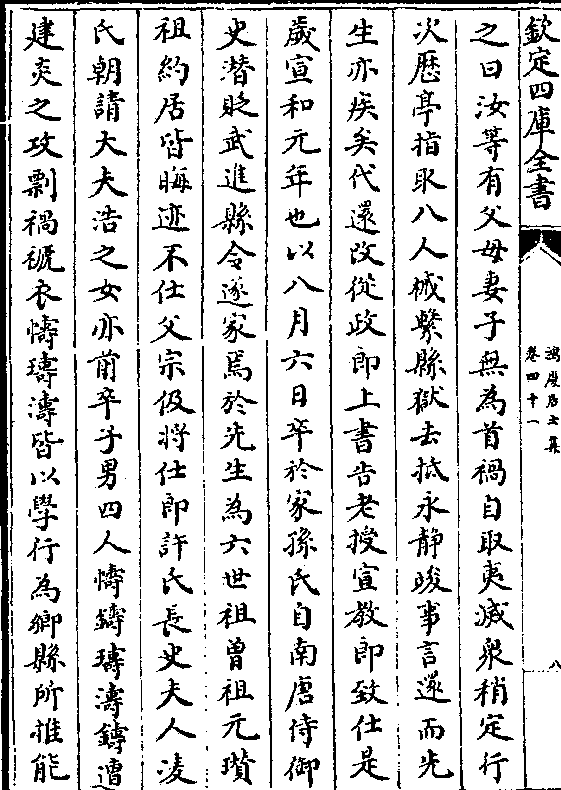 欽定四庫全書
鴻慶居士集
卷四十一
八
之曰汝等有父母妻子無為首禍自取夷滅衆稍定行
次厯亭指取八人械繫縣獄去抵永静竣事言還而先
生亦疾矣代還改從政郎上書告老授宣教郎致仕是
歲宣和元年也以八月六日卒於家孫氏自南唐侍御
史潛貶武進縣令遂家焉於先生為六世祖曾祖元瓚
祖約居皆晦迹不仕父宗伋將仕郎許氏長史夫人凌
氏朝請大夫浩之女亦前卒子男四人幬鑄璹濤鑄遭
建炎之攻剽禍褫衣幬璹濤皆以學行為鄉縣所推能